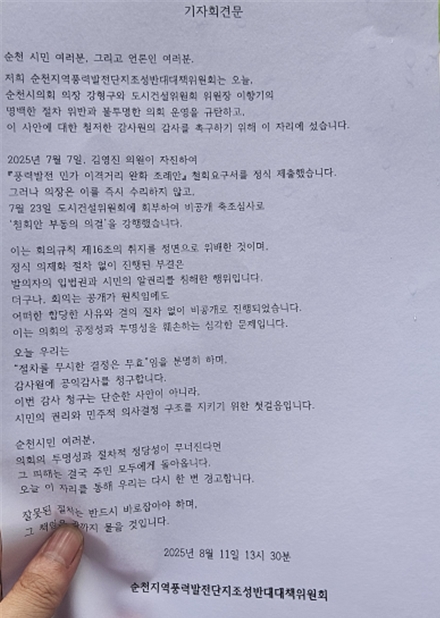 기자회견문
순천 시민 여러분, 그리고 언론인 여러분.
저희 순천지역풍력발전단지조성반대대책위원회는 오늘,
순천시의회 의장 강형구와 도시건설위원회 위원장 이향기의
명백한 절차 위반과 불투명한 의회 운영을 규탄하고,
이 사안에 대한 철저한 감사원의 감사를 촉구하기 위해 이 자리에 섰습니다.
2025년 7월 7일, 김영진 의원이 자진하여
『풍력발전 민가 이격거리 완화 조례안』 철회요구서를 정식 제출했습니다.
그러나 의장은 이를 즉시 수리하지 않고,
7월 23일 도시건설위원회에 회부하여 비공개 축조심사로
'철회안 부동의 의결'을 강행했습니다.
이는 회의규칙 제16조의 취지를 정면으로 위배한 것이며,
정식 의제화 절차 없이 진행된 부결은
발의자의 입법권과 시민의 알권리를 침해한 행위입니다.
더구나, 회의는 공개가 원칙임에도
어떠한 합당한 사유와 결의 절차 없이 비공개로 진행되었습니다.
이는 의회의 공정성과 투명성을 훼손하는 심각한 문제입니다.
오늘 우리는
"절차를 무시한 결정은 무효"임을 분명히 하며,
감사원에 공익감사를 청구합니다.
이번 감사 청구는 단순한 사안이 아니라,
시민의 권리와 민주적 의사결정 구조를 지키기 위한 첫걸음입니다.
순천시민 여러분,
의회의 투명성과 절차적 정당성이 무너진다면
그 피해는 결국 주민 모두에게 돌아옵니다.
오늘 이 자리를 통해 우리는 다시 한 번 경고합니다.
잘못된 절차는 반드시 바로잡아야 하며,
그 책임은 까지 물을 것입니다.
2025년 8월 11일 13시 30분
순천지역풍력발전단지조성반대대책위원회